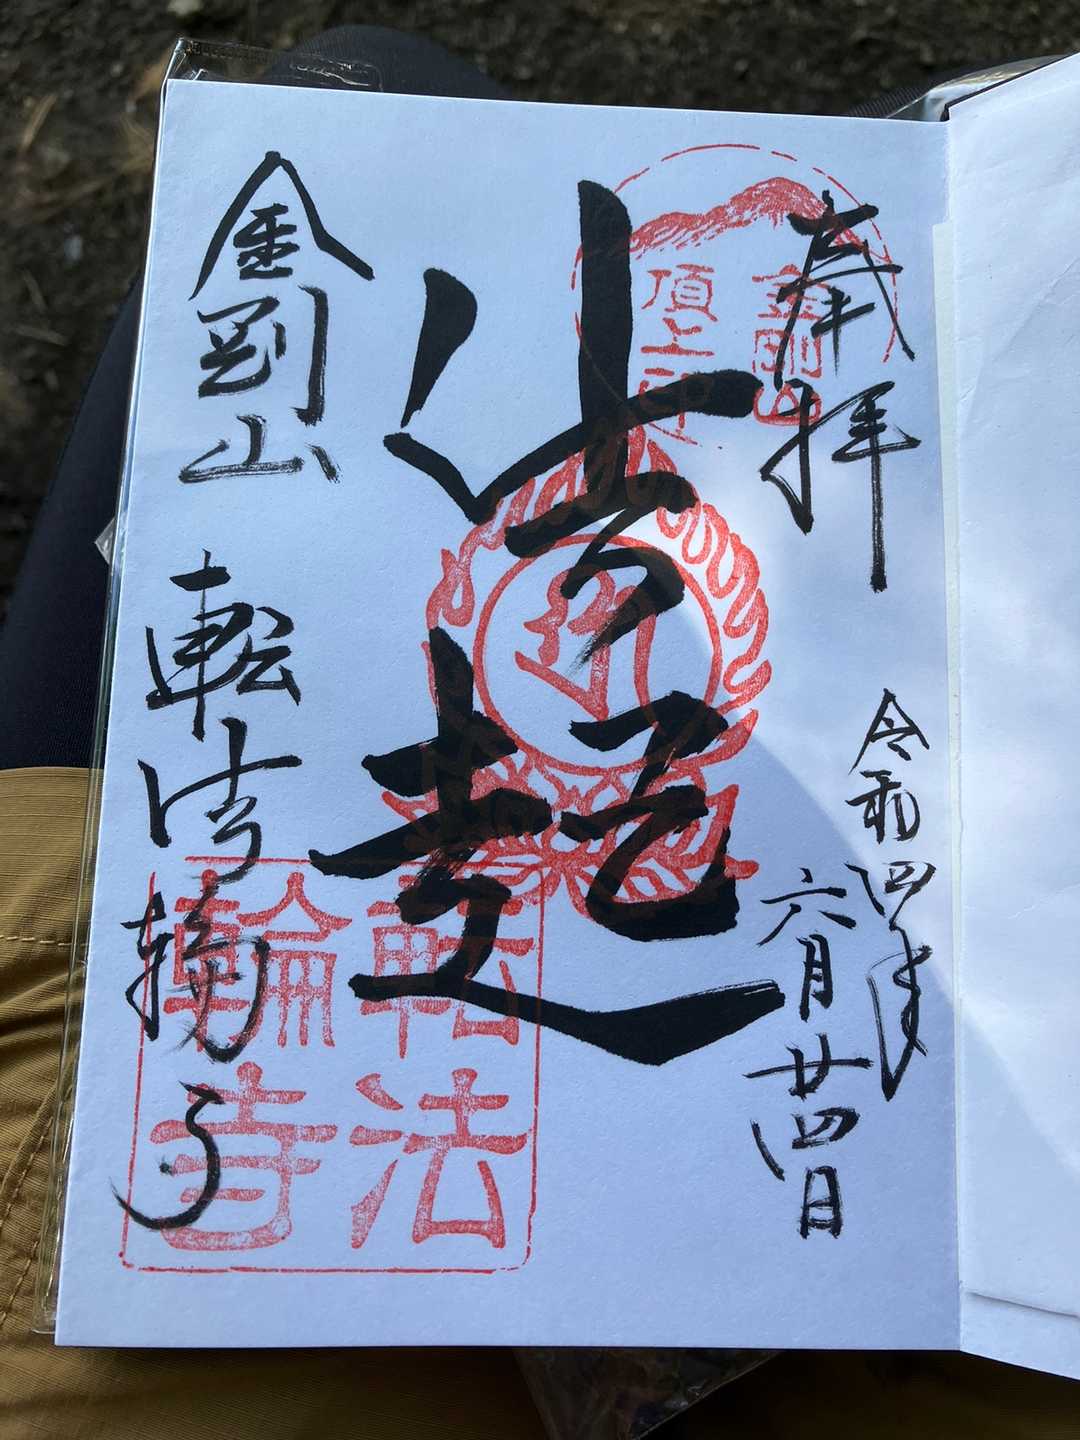 奉拝
令和四年
六月廿四日
法起
金剛山
転法輪寺
金剛山
頂上
転法
輪寺